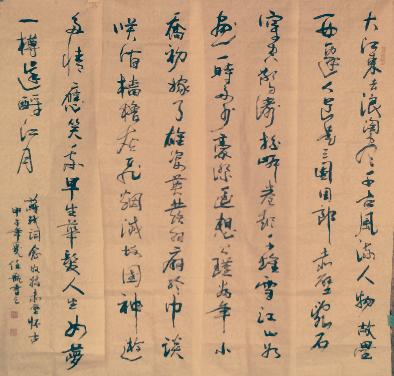 大江東去浪淘尽千古風流人物故壘
西邊人道是三國周郎赤壁亂石
穿空驚濤拍岸卷起千堆雪江山如
畫一時多少豪傑遙想公瑾當年小
喬初嫁了雄姿英發羽扇綸巾談
笑間檣櫓灰飛煙滅故國神遊
多情應笑我早生華髮人生如夢
一樽還酹江月
蘇軾詞念奴嬌赤壁懷古